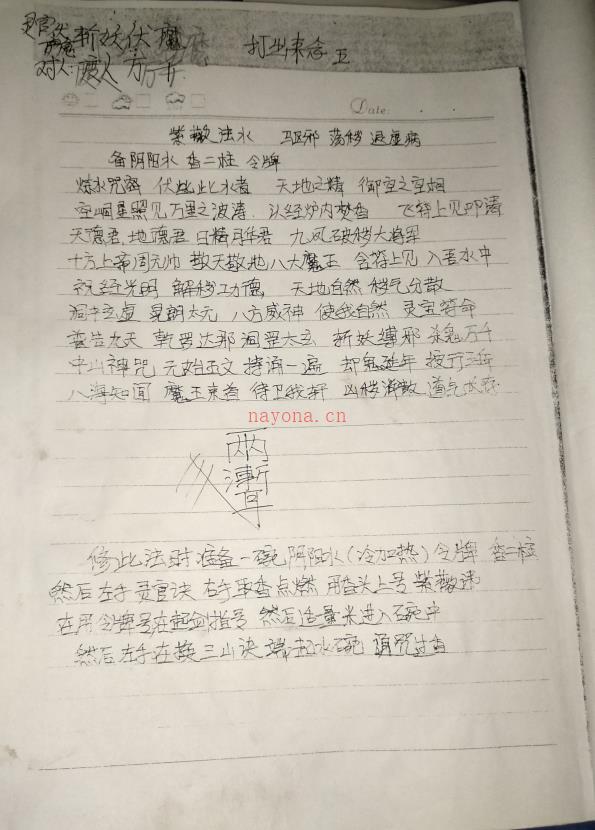 斩妖伏魔
打出来念
对人
Date:
紫微法水 驱邪 荡秽 退虚病
备阴阳水 香二柱 令牌
炼水咒解 伏此此水者 天地之精 御空之空相
空峒星照见万里之波涛 认经炉内焚香 飞符上见
天德君 地德君 日精月华君 九凤破秽大将军
十方上帝周元帅 敕天敕地八大魔王 含符上见 入吾水中
祝经光明 解秽功德 天地自然 秽气分散
洞中玄虚 晃朗太元 八方威神 使我自然 灵宝符命
普告九天 乾罗达那 洞罡太玄 斩妖缚邪 杀鬼万千
中山神咒 元始玉文 持诵一遍 却鬼延年 按行五岳
八海知闻 魔王束首 侍卫我轩 凶秽消散 道气长存
nayona.cn
修此法时准备一碗阴阳水(冷加热)令牌 香二柱
然后左手灵官诀 右手拿香点燃 用香头上号 紫微讳
在用令牌号在起剑指号 然后适量米进入碗中
然后左手在换三山诀 端起水碗 诵咒过香